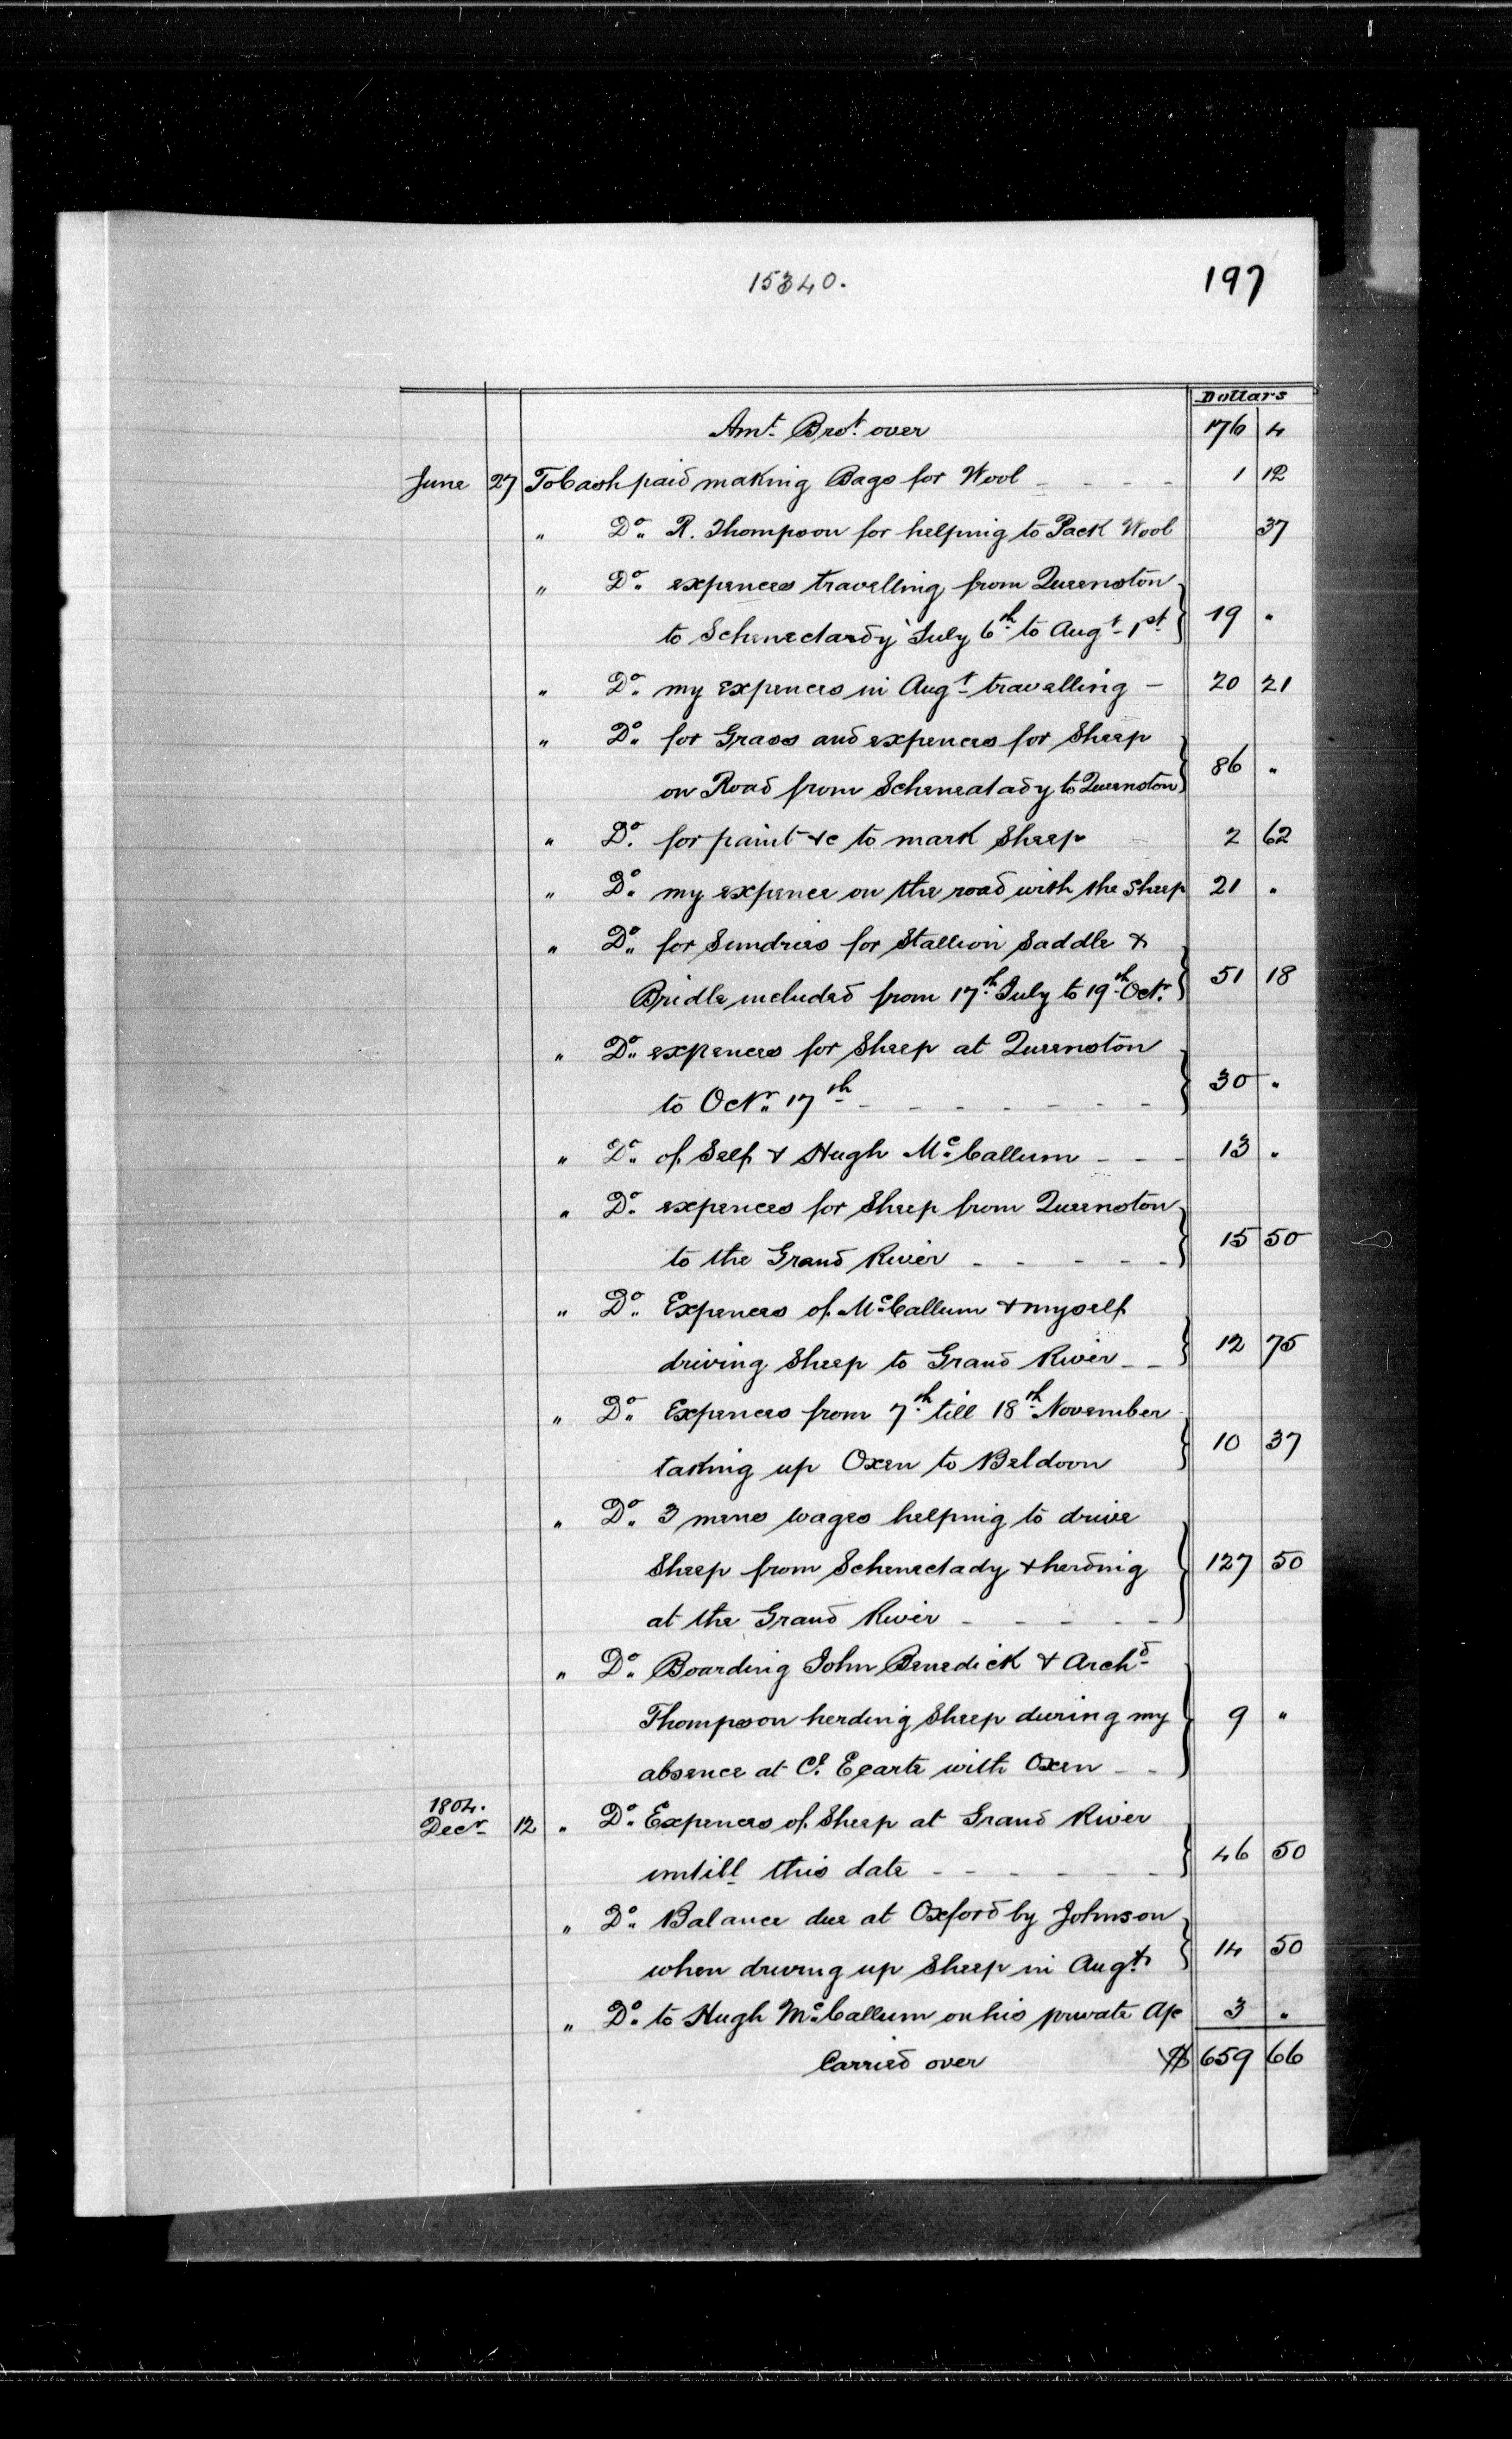 15340.
197
Dollars
Amt. Brot. over 176 4
June 27 To Cash paid making Bags for Wool - - - - 1 12
" Do. R. Thompson for helping to Pack Wool 37
" Do. expences travelling from Queenston
to Schenectardy July 6th to Augt. 1st } 19 "
" Do. my expences in Augt. travelling - 20 21
" Do. for Grass and expences for Sheep
on Road from Scheneatady to Queenston } 86 "
" Do. for paint &c to mark Sheep 2 62
" Do. my expence on the road with the sheep 21 "
" Do. for Sundries for Stallion Saddle &
Bridle included from 17th July to 19th Octr. } 51 18
" Do. expences for Sheep at Queenston
to Octr. 17th - - - - - - - } 30 "
" Do. of Self & Hugh McCallum - - - 13 "
" Do. expences for Sheep from Queenston
to the Grand River - - - - - } 15 50
" Do. Expences of McCallum & myself
driving Sheep to Grand River - - } 12 75
" Do. Expences from 7th till 18th November
taking up Oxen to Baldoon } 10 37
" Do. 3 mens wages helping to drive
Sheep from Schenectady & herding } 127 50
at the Grand River - - - - -
" Do. Boarding John Benedick & Archd.
Thompson herding Sheep during my } 9 "
absence at with Oxen - -
1804.
Decr. 12 " Do. Expences of Sheep at Grand River
untill this date - - - - - - } 46 50
" Do. Balance due at Oxford by Johnson
when driving up Sheep in Augt. } 14 50
" Do. to Hugh McCallum on his private A/c 3 "
Carried over $ 659 66